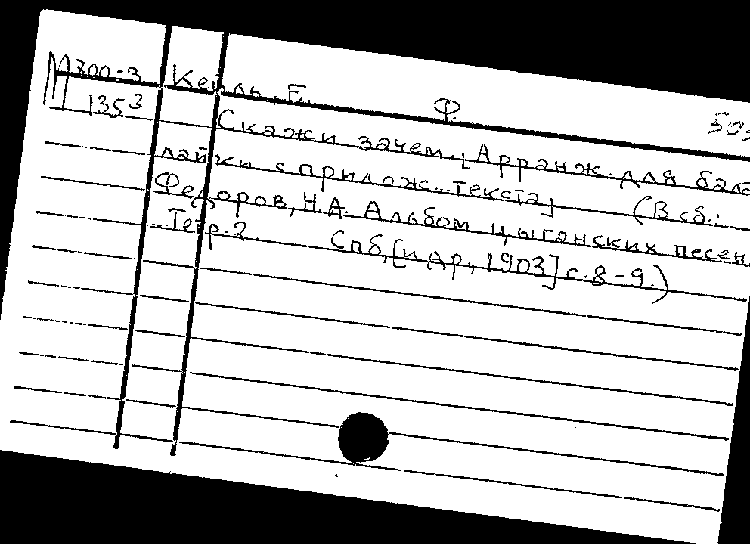 М 800-3 Кейль, Е. Ф.
135³
Скажи зачем. [Арранж. для бала
лайки с прилож. текста] (В сб.:
Федоров, Н.А. Альбом цыганских песен.
Тетр. 2. Спб, [и др., 1903] с. 8-9.)